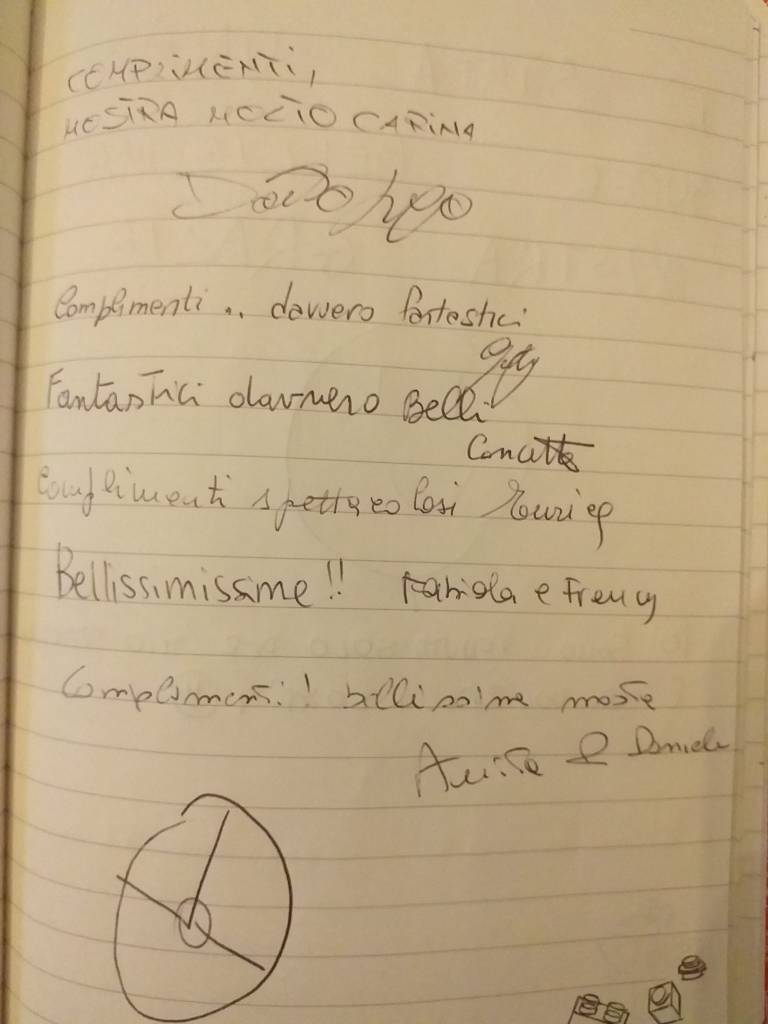 COMPLIMENTI,
MOSTRA MOLTO CARINA
Complimenti .. davvero fantastici
Fantastici davvero Belli
Concetta
Complimenti spettacolosi
Bellissimissime!! Fabiola e Francy
Complimenti! bellissima mostra
& Daniele